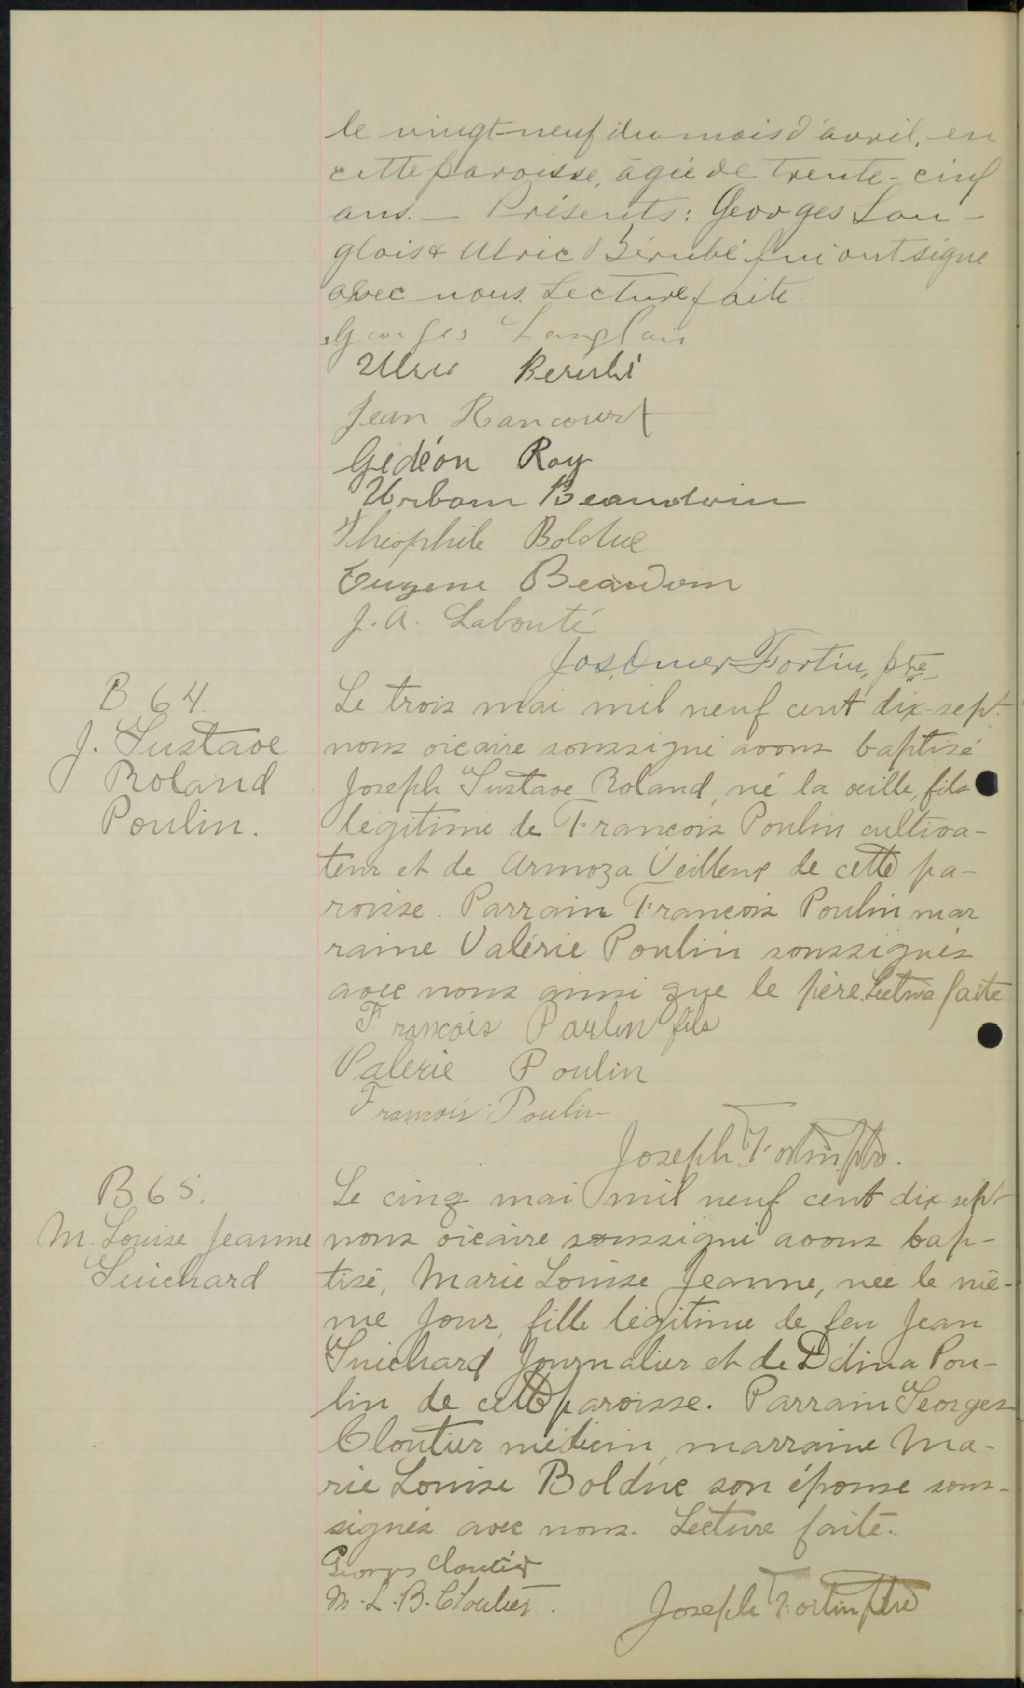 le vingt-neuf du mois d'avril, en
cette paroisse, agée de trente-cinq
ans. — Présents: Georges Lan-
glois & Ulric Bérubé qui ont signé
avec nous. Lecture faite.
Georges Langlois
Ulric Berubé
Jean Rancourt
Gédéon Roy
Urbain Beaudoin
Théophile Bolduc
Eugene Beaudoin
J. A. Labonté
Jos. Omer Fortin, ptre
B 64.
J. Gustave
Roland
Poulin.
Le trois mai mil neuf cent dix-sept
nous vicaire soussigné avons baptisé
Joseph Gustave Roland, né la veille, fils
légitime de François Poulin cultiva-
teur et de Armoza Veilleux de cette pa-
roisse. Parrain François Poulin mar
raine Valérie Poulin soussignés
avec nous ainsi que le père. Lecture faite
François Poulin fils
Valerie Poulin
François Poulin
Joseph Fortin ptre.
B 65.
M. Louise Jeanne
Guichard
Le cinq mai mil neuf cent dix sept
nous vicaire soussigné avons bap-
tisé, Marie Louise Jeanne, née le mê-
me jour, fille légitime de feu Jean
Guichard journalier et de Délina Pou-
lin de cette paroisse. Parrain Georges
Cloutier médecin, marraine Ma-
rie Louise Bolduc son épouse sous-
signés avec nous. Lecture faite.
Georges Cloutier
M. L. B. Cloutier.
Joseph Fortin ptre